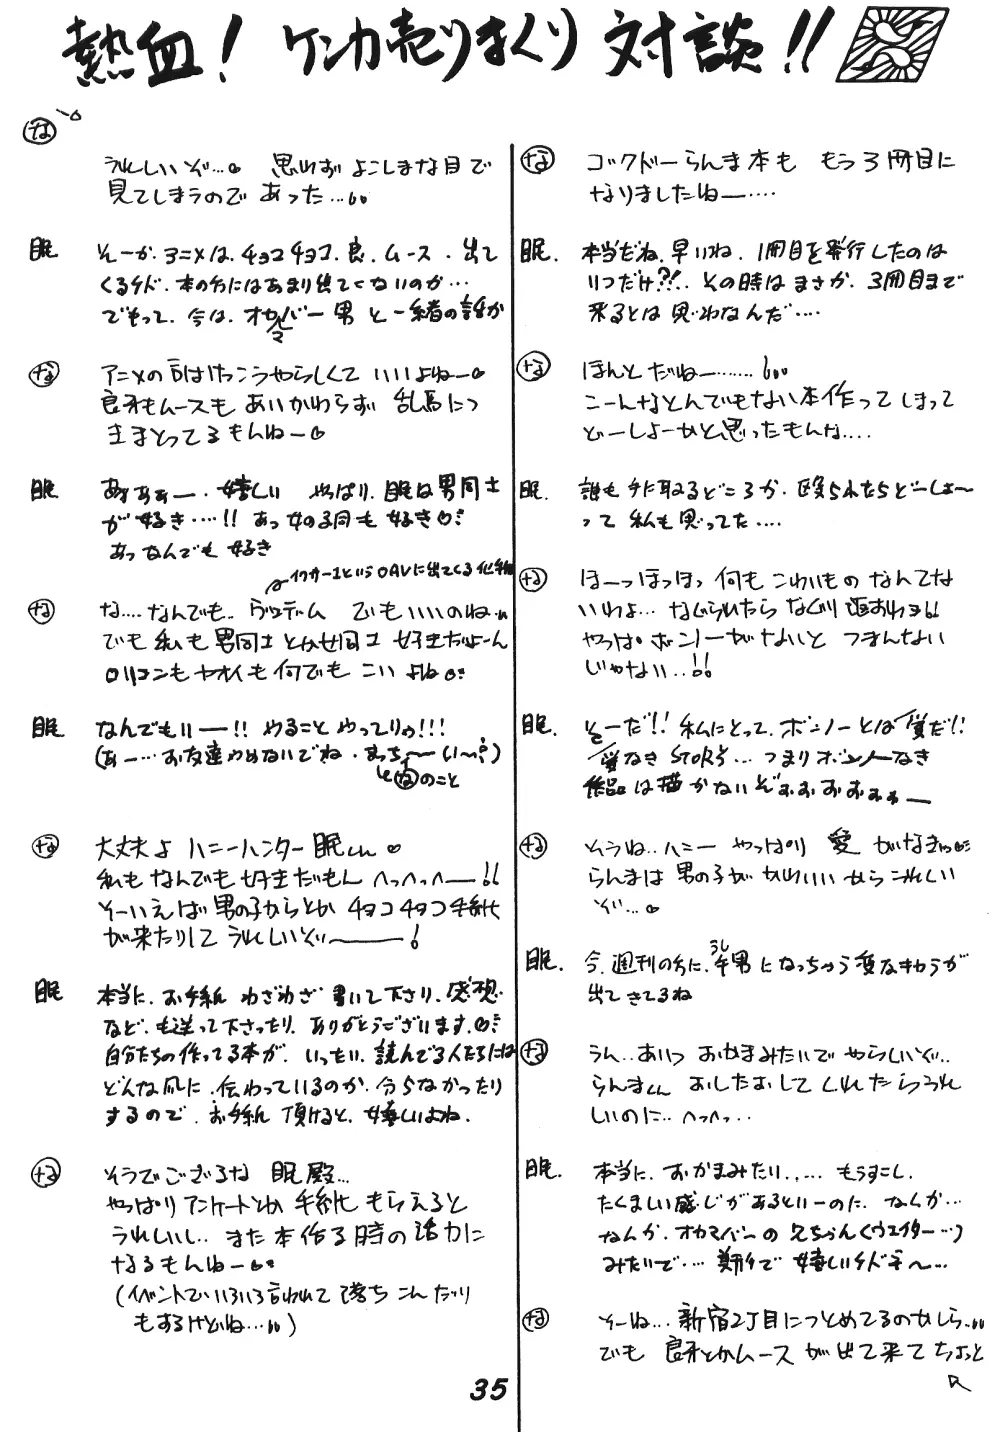 熱血! ケンカ売りまくり対談!!
な コックドーらんま本も もう3冊目に
なりましたねー‥‥
眠. 本当だね. 早いね. 1冊目を発行したのは
いつだけ?!. その時は まさか. 3冊目まで
来るとは 思わなんだ‥‥
な ほんとだねー‥‥‥
こーんなとんでもない本作ってしまって
どーしよーかと思ったもんな‥‥
眠. 誰も手に取るどころか. 殴られたらどーしよ〜
って 私も思ってた‥‥
な ほーっほっほっ 何も こわいもの なんてな
いわよ… なぐられたら なぐり返すわよ!!
やっぱ ボンノーがないと つまんない
じゃない‥!!
眠. そーだ!! 私にとって ボンノーとは 愛だ!!
愛なき STORY… つまりボンノーなき
作品は描かないぞぉぉぉぉぉぉー
な そうね‥ハニー やっぱり 愛 がなきゃ♡
らんまは 男の子が かわいいから うれしい
ぞ…♡
眠. 今. 週刊の方に. 牛男になっちゃう変なキャラが
うし
出てきてるね
な うん‥あいつ おかまみたいで やらしいぞ‥
らんまくん おしたおして くれたら うれ
しいのに‥へっへっ‥
眠. 本当に. おかまみたい‥‥ もうすこし.
たくましい感じがあるといーのに. なんか…
なんか. オカマバーの 兄ちゃん(ウエイター…)
みたいで‥‥ 期待で 嬉しいケド さ〜…
な そーね… 新宿2丁目につとめてるのかしら‥
でも 良牙とかムースが出て来てちょっと
な うれしいぞ…♡ 思わず よこしまな目で
見てしまうので あった…
眠 そーか. アニメは. チョコチョコ. 良. ムース. 出て
くるケド. 本の方にはあまり出てこないのか…
でもって. 今は. オカマバー男 と一緒の話か
な アニメの方は けっこうやらしくて いいよねー♡
良牙もムースも あいかわらず 乱馬につ
きまとってるもんねー♡
眠 あぁぁぁー. 嬉しい やっぱり. 眠は男同士
が好き‥‥!! あっ 女の子同士も 好き♡
あっ なんでも 好き
な な‥‥なんでも‥ ヴェデム でもいいのね‥
でも 私も 男同士とか女同士 好きだよーん
ロリコンも ヤオイも 何でも こいよね♡
眠 なんでもいー!! やること やってりゃ!!!
(あー… お友達やめないでね. まっち〜 い〜?)
なのこと
な 大丈夫よ ハニーハンター 眠くん♡
私も なんでも 好きだもん へっへっへー!!
そーいえば 男の子からとか チョコチョコ 手紙
が来たりして うれしいぞぃ――!
眠 本当に. お手紙 わざわざ 書いて下さり. 感想
など. も送って下さったり. ありがとうございます♡
自分たちの作ってる本が. いったい. 読んでる人たちには
どんな風に. 伝わっているのか. 分らなかったり
するので. お手紙 頂けると. 嬉しいよね.
な そうでござるな 眠殿…
やっぱり アンケートとか 手紙 もらえると
うれしいし. また 本作る時の活力に
なるもんねー
(イベントでいろいろ言われて 落ちこんだり
もするけどね…)
35